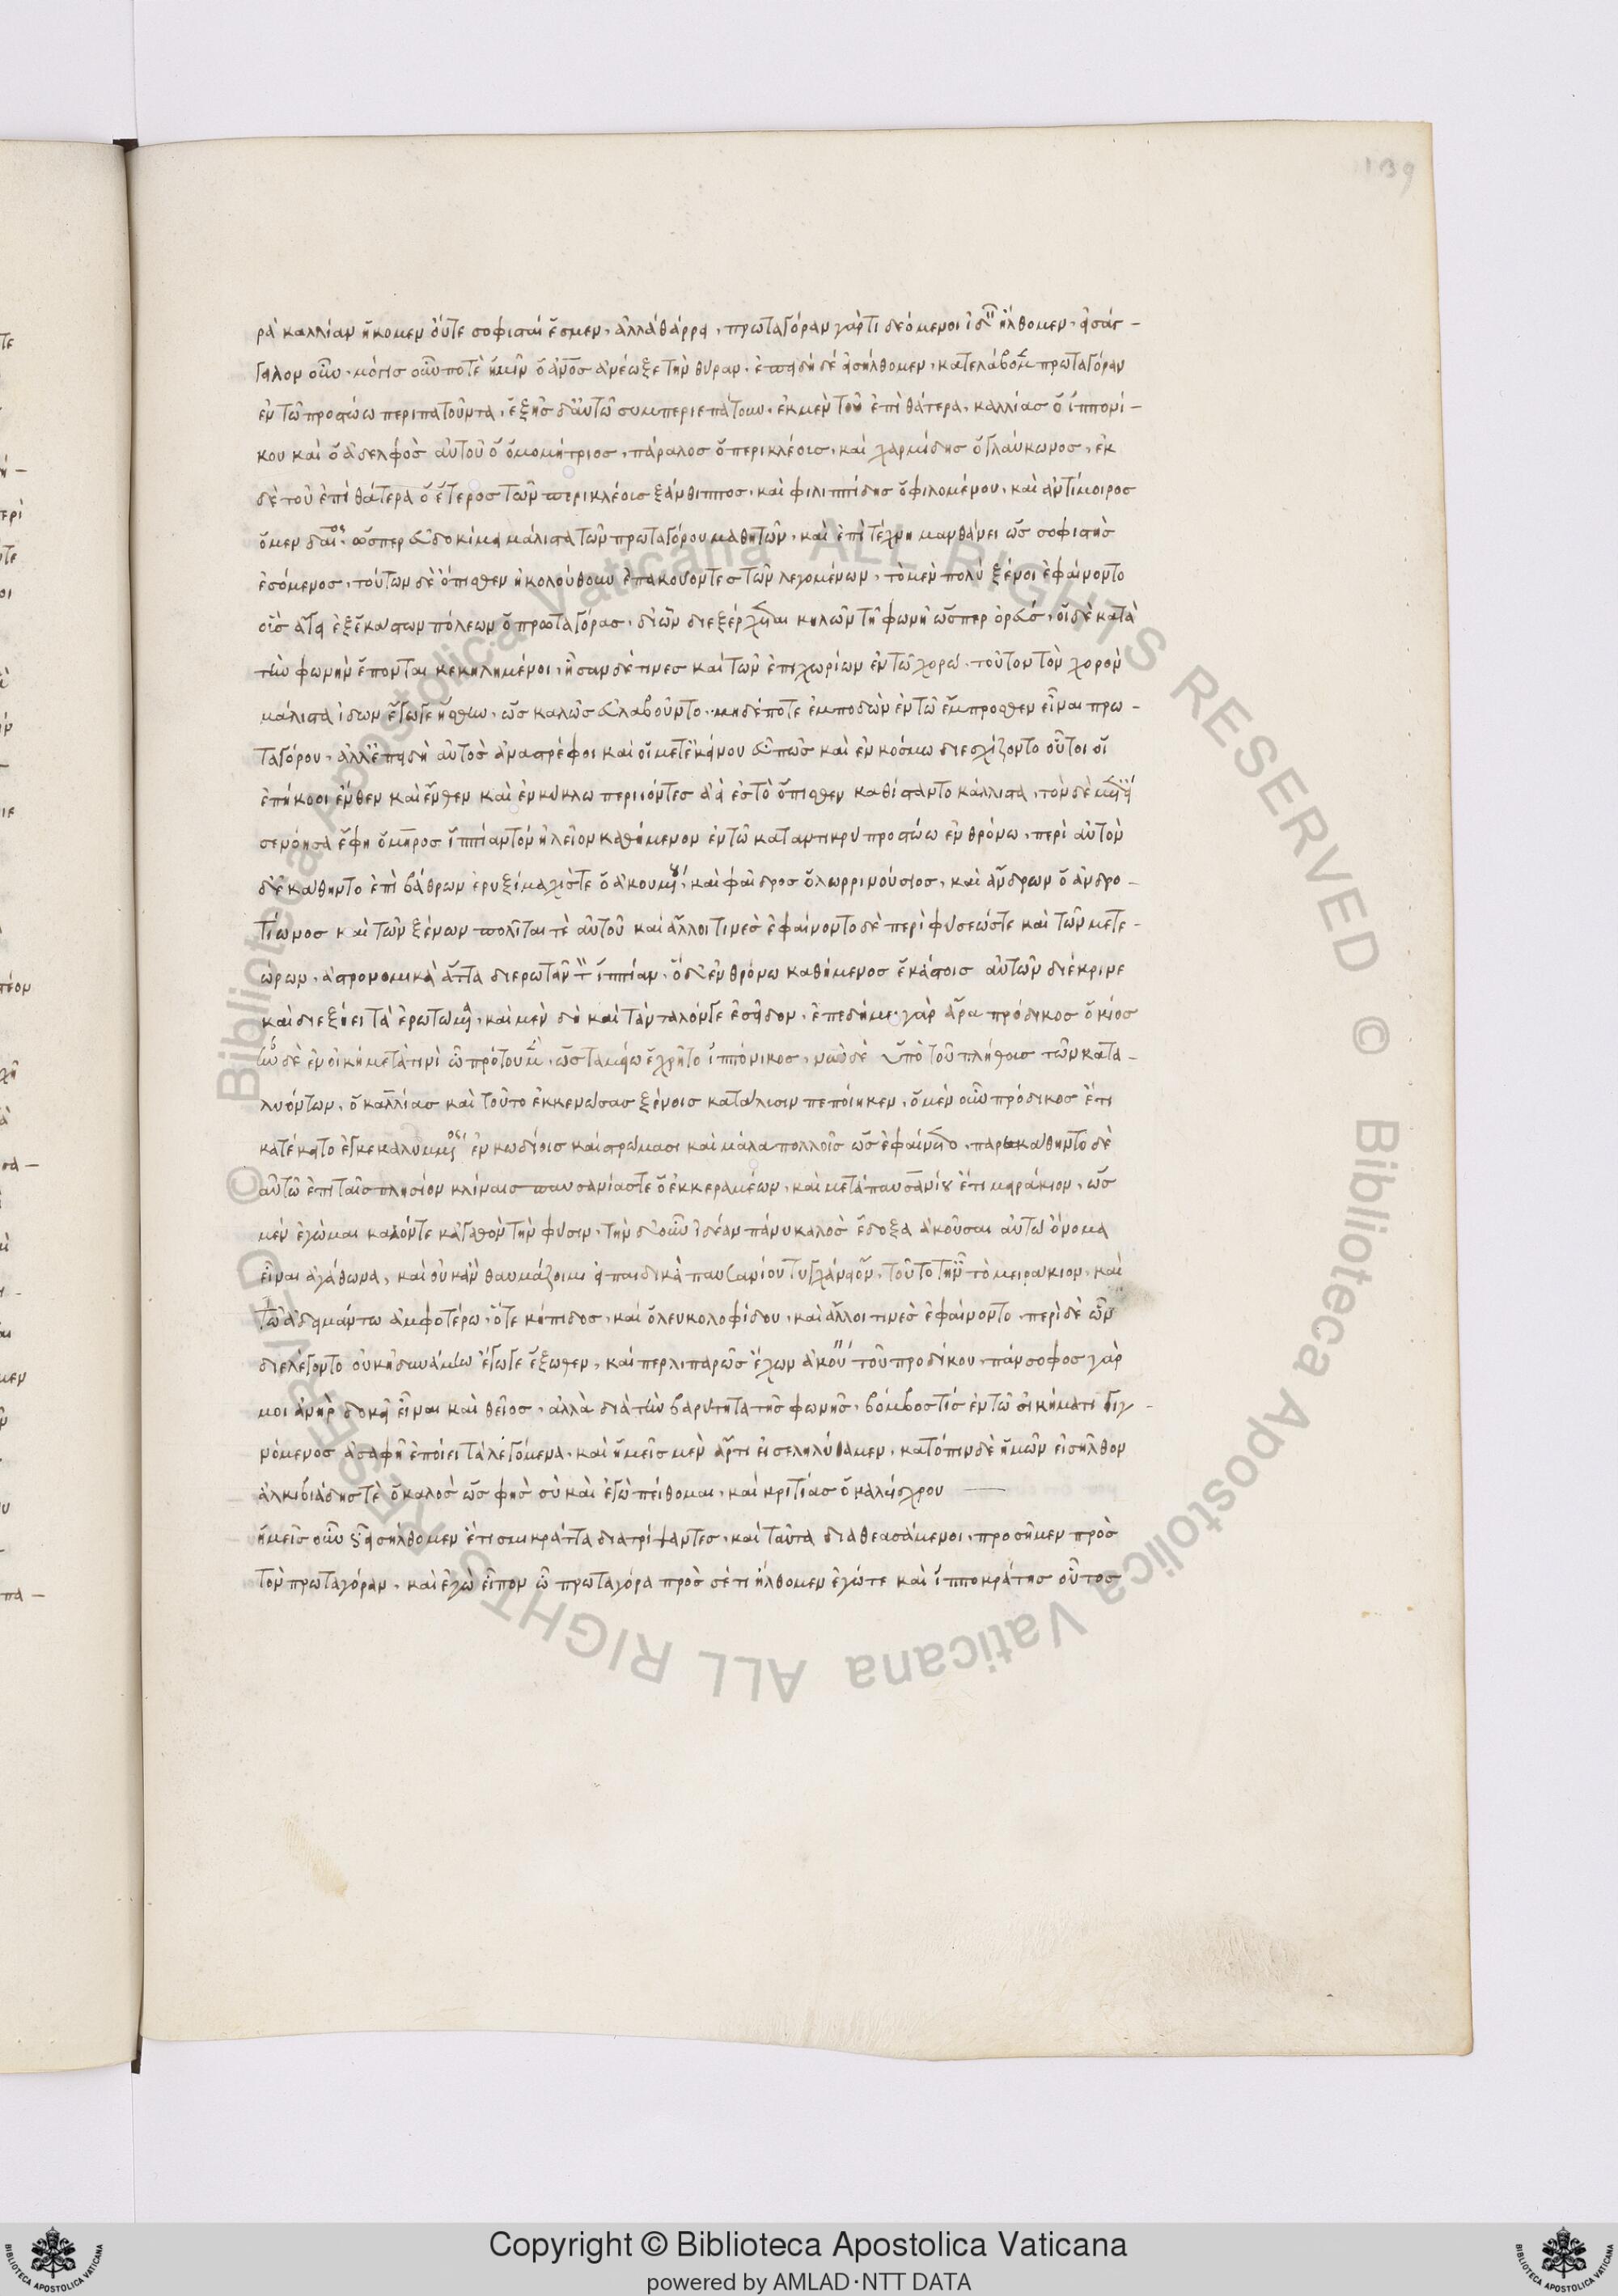 139
ρὰ καλλίαν ἥκομεν οὔτε σοφισταί ἐσμεν, ἀλλὰ θάρρει, πρωταγόραν γάρ τι δεόμενοι ἰδεῖν ἤλθομεν, εἰσάγ-
γειλον οὖν. μόγις οὖν ποτὲ ἡμῖν ὁ ἄνος ἀνέωξε τὴν θύραν. ἐπειδὴ δὲ εἰσήλθομεν, κατελάβομεν πρωταγόραν
ἐν τῶ προστώω περιπατοῦντα, ἑξῆς δ' αὐτῶ συμπεριεπάτουν, ἐκ μὲν τοῦ ἐπὶ θάτερα, καλλίας ὁ ἱππονί-
κου καὶ ὁ ἀδελφὸς αὐτοῦ ὁ ὁμομήτριος, πάραλος ὁ περικλέους, καὶ χαρμίδης ὁ γλαύκωνος, ἐκ
δὲ τοῦ ἐπὶ θάτερα ὁ ἕτερος τῶν περικλέους ξάνθιππος, καὶ φιλιππίδης ὁ φιλομένου, καὶ ἀντίμοιρος
ὁ μεν δαῖος. ὥσπερ εὐδοκίμει μάλιστα τῶν πρωταγόρου μαθητῶν, καὶ ἐπὶ τέχνη μανθάνει ὡς σοφιστὴς
ἐσόμενος, τούτων δὲ ὄπισθεν ἠκολούθουν ἐπακούοντες τῶν λεγομένων, τὸ μὲν πολὺ ξένοι ἐφαίνοντο
οὓς ἄγει ἐξ ἑκάστων πόλεων ὁ πρωταγόρας, δι' ὧν διεξέρχεται κηλῶν τῆ φωνῆ ὥσπερ ὀρφεύς, οἱ δὲ κατὰ
τὴν φωνὴν ἕπονται κεκηλημένοι, ἦσαν δέ τινες καὶ τῶν ἐπιχωρίων ἐν τῶ χορῶ. τοῦτον τὸν χορὸν
μάλιστα ἰδων ἔγωγε ἥσθην, ὡς καλῶς εὐλαβοῦντο. μηδέποτε ἐμποδὼν ἐν τῶ ἔμπροσθεν εἶναι πρω-
ταγόρου, ἀλλ' ἐπειδὴ αὐτὸς ἀναστρέφοι καὶ οἱ μετ' ἐκείνου εὖ πως καὶ ἐν κόσμω διεσχίζοντο οὗτοι οἱ
ἐπήκοοι ἔνθεν καὶ ἔνθεν καὶ ἐν κύκλω περιιόντες ἀεὶ ἐς τὸ ὄπισθεν καθίσταντο κάλλιστα, τὸν δὲ μετ' εἰ
σενόησα ἔφη ὅμηρος ἱππίαν τὸν ἠλεῖον καθήμενον ἐν τῶ καταντικρὺ προστώω ἐν θρόνω, περὶ αὐτὸν
δ' ἐκάθηντο ἐπὶ βάθρων ἐρυξίμαχός τε ὁ ἀκουμενοῦ, καὶ φαῖδρος ὁ λωρρινούσιος, καὶ ἄνδρων ὁ ἀνδρο-
τίωνος καὶ τῶν ξένων πολῖταί τὲ αὐτοῦ καὶ ἄλλοι τινές ἐφαίνοντο δὲ περὶ φύσεώς τε καὶ τῶν μετε-
ώρων, ἀστρονομικὰ ἄττα διερωτᾶν τὸν ἱππίαν, ὁ δ' ἐν θρόνω καθήμενος ἑκάστοις αὐτῶν διέκρινε
καὶ διεξήει τὰ ἐρωτώμενα, καὶ μὲν δὴ καὶ τάνταλόν γε ἐσεῖδον, ἐπεδήμει γὰρ ἄρα πρόδικος ὁ κίος
ἦν δὲ ἐν οἰκήματί τινὶ ὧ προτοῦ μὲν, ὡς ταμείω ἐχρῆτο ἱππόνικος, νῦν δὲ ὑπὸ τοῦ πλήθους τῶν κατα-
λυόντων, ὁ καλλίας καὶ τοῦτο ἐκκενώσας ξένοις κατάλυσιν πεποίηκεν, ὁ μὲν οὖν πρόδικος ἔτι
κατέκειτο ἐγκεκαλυμμένος ἐν κωδίοις καὶ στρώμασι καὶ μάλα πολλοῖς ὡς ἐφαίνετο, παρεκάθηντο δὲ
αὐτῶ ἐπι ταῖς πλησίον κλίναις παυσανίας τε ὁ ἐκ κεραμέων, καὶ μετὰ παυσανίου ἔτι μειράκιον, ὡς
μὲν ἐγῶμαι καλόν τε κἀγαθὸν τὴν φύσιν, τὴν δ' οὖν ἰδέαν πάνυ καλὸς ἔδοξα ἀκοῦσαι αὐτῶ ὄνομα
εἶναι ἀγάθωνα, καὶ οὐκ ἂν θαυμάζοιμι εἰ παιδικὰ παυσανίου τυγχάνει ὤν, τοῦτο τ' ἦν τὸ μειράκιον, καὶ
τὼ ἀδειμάντω ἀμφοτέρω, ὅ τε κήπιδος, καὶ ὁ λευκολοφίδου, καὶ ἄλλοι τινὲς ἐφαίνοντο, περὶ δὲ ὧν
διελέγοντο οὐκ ἠδυνάμην ἔγωγε ἔξωθεν, καί περ λιπαρῶς ἔχων ἀκούειν τοῦ προδίκου, πάνσοφος γάρ
μοι ἀνὴρ δοκεῖ εἶναι καὶ θεῖος, ἀλλὰ διὰ τὴν βαρύτητα τῆς φωνῆς, βόμβος τίς ἐν τῶ οἰκήματι γιγ-
νόμενος ἀσαφῆ ἐποίει τὰ λεγόμενα, καὶ ἡμεῖς μὲν ἄρτι εἰσεληλύθαμεν, κατόπιν δὲ ἡμῶν εἰσῆλθον
ἀλκιβιάδης τὲ ὁ καλὸς ὡς φὴς σὺ καὶ ἐγὼ πείθομαι, καὶ κριτίας ὁ καλαίσχρου
ἡμεῖς οὖν ὡς εἰσήλθομεν ἔτι σμικρ' ἄττα διατρίψαντες, καὶ ταῦτα διαθεασάμενοι, προσῆμεν πρὸς
τὸν πρωταγόραν, καὶ ἐγὼ εἶπον ὦ πρωταγόρα πρὸς σέ τι ἤλθομεν ἐγώ τε καὶ ἱπποκράτης οὗτος
Copyright © Biblioteca Apostolica Vaticana
powered by AMLAD·NTT DATA